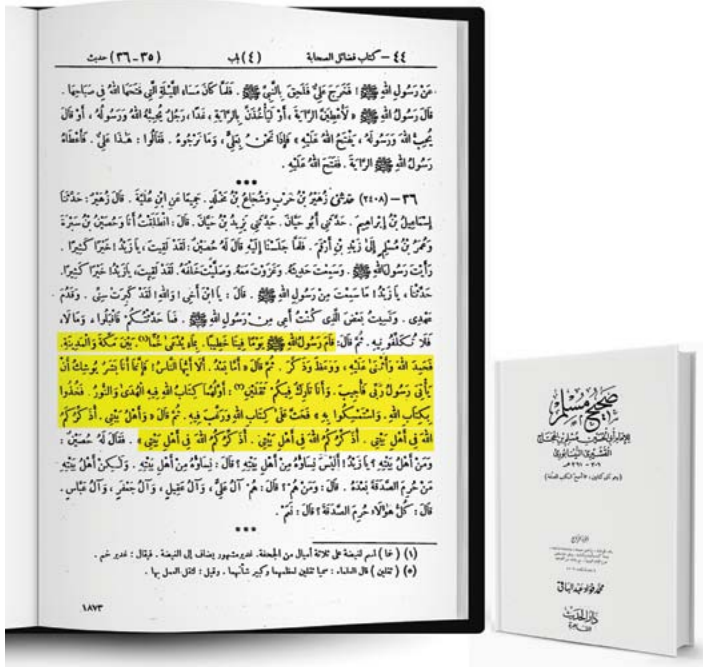 ٤٤ – كتاب فضائل الصحابة (٤) باب (٣٥-٣٦) حديث
عَنْ رَسُولِ اللهِ ﷺ ! فَخَرَجَ عَلِيٌّ فَلَحِقَ بِالنَّبِيِّ ﷺ . فَلَمَّا كَانَ مَسَاءُ اللَّيْلَةِ الَّتِي فَتَحَهَا اللهُ فِي صَبَاحِهَا .
قَالَ رَسُولُ اللهِ ﷺ « لَأُعْطِيَنَّ الرَّايَةَ ، أَوْ لَيَأْخُذَنَّ بِالرَّايَةِ ، غَدًا ، رَجُلٌ يُحِبُّهُ اللهُ وَرَسُولُهُ ، أَوْ قَالَ
يُحِبُّ اللهَ وَرَسُولَهُ ، يَفْتَحُ اللهُ عَلَيْهِ » فَإِذَا نَحْنُ بِعَلِيٍّ ، وَمَا نَرْجُوهُ . فَقَالُوا : هَٰذَا عَلِيٌّ . فَأَعْطَاهُ
رَسُولُ اللهِ ﷺ الرَّايَةَ . فَفَتَحَ اللهُ عَلَيْهِ .
***
٣٦ – (٢٤٠٨) حدثني زُهَيْرُ بْنُ حَرْبٍ وَشُجَاعُ بْنُ مَخْلَدٍ . جَمِيعًا عَنِ ابْنِ عُلَيَّةَ . قَالَ زُهَيْرٌ : حَدَّثَنَا
إِسْمَاعِيلُ بْنُ إِبْرَاهِيمَ . حَدَّثَنِي أَبُو حَيَّانَ . حَدَّثَنِي يَزِيدُ بْنُ حَيَّانَ . قَالَ : انْطَلَقْتُ أَنَا وَحُصَيْنُ بْنُ سَبْرَةَ
وَعُمَرُ بْنُ مُسْلِمٍ إِلَىٰ زَيْدِ بْنِ أَرْقَمَ . فَلَمَّا جَلَسْنَا إِلَيْهِ قَالَ لَهُ حُصَيْنٌ : لَقَدْ لَقِيتَ ، يَا زَيْدُ ! خَيْرًا كَثِيرًا .
رَأَيْتَ رَسُولَ اللهِ ﷺ . وَسَمِعْتَ حَدِيثَهُ . وَغَزَوْتَ مَعَهُ . وَصَلَّيْتَ خَلْفَهُ . لَقَدْ لَقِيتَ ، يَا زَيْدُ ! خَيْرًا كَثِيرًا .
حَدِّثْنَا ، يَا زَيْدُ ! مَا سَمِعْتَ مِنْ رَسُولِ اللهِ ﷺ . قَالَ : يَا ابْنَ أَخِي ! وَاللهِ ! لَقَدْ كَبِرَتْ سِنِّي . وَقَدُمَ
عَهْدِي . وَنَسِيتُ بَعْضَ الَّذِي كُنْتُ أَعِي مِنْ رَسُولِ اللهِ ﷺ . فَمَا حَدَّثْتُكُمْ فَاقْبَلُوا . وَمَا لَا ،
فَلَا تُكَلِّفُونِيهِ . ثُمَّ قَالَ : قَامَ رَسُولُ اللهِ ﷺ يَوْمًا فِينَا خَطِيبًا . بِمَاءٍ يُدْعَىٰ خُمًّا(١) . بَيْنَ مَكَّةَ وَالْمَدِينَةِ .
فَحَمِدَ اللهَ وَأَثْنَىٰ عَلَيْهِ ، وَوَعَظَ وَذَكَّرَ . ثُمَّ قَالَ « أَمَّا بَعْدُ . أَلَا أَيُّهَا النَّاسُ ! فَإِنَّمَا أَنَا بَشَرٌ يُوشِكُ أَنْ
يَأْتِيَ رَسُولُ رَبِّي فَأُجِيبَ . وَأَنَا تَارِكٌ فِيكُمْ ثَقَلَيْنِ(٢) : أَوَّلُهُمَا كِتَابُ اللهِ فِيهِ الْهُدَىٰ وَالنُّورُ . فَخُذُوا
بِكِتَابِ اللهِ . وَاسْتَمْسِكُوا بِهِ » فَحَثَّ عَلَىٰ كِتَابِ اللهِ وَرَغَّبَ فِيهِ . ثُمَّ قَالَ « وَأَهْلُ بَيْتِي . أُذَكِّرُكُمُ
اللهَ فِي أَهْلِ بَيْتِي . أُذَكِّرُكُمُ اللهَ فِي أَهْلِ بَيْتِي . أُذَكِّرُكُمُ اللهَ فِي أَهْلِ بَيْتِي » . فَقَالَ لَهُ حُصَيْنٌ :
وَمَنْ أَهْلُ بَيْتِهِ ؟ يَا زَيْدُ ! أَلَيْسَ نِسَاؤُهُ مِنْ أَهْلِ بَيْتِهِ ؟ قَالَ : نِسَاؤُهُ مِنْ أَهْلِ بَيْتِهِ . وَلَٰكِنْ أَهْلُ بَيْتِهِ
مَنْ حُرِمَ الصَّدَقَةَ بَعْدَهُ . قَالَ : وَمَنْ هُمْ ؟ قَالَ : هُمْ آلُ عَلِيٍّ ، وَآلُ عَقِيلٍ ، وَآلُ جَعْفَرٍ ، وَآلُ عَبَّاسٍ .
قَالَ : كُلُّ هَٰؤُلَاءِ حُرِمَ الصَّدَقَةَ ؟ قَالَ : نَعَمْ .
***
(١) ( خما ) اسم لغيضة على ثلاثة أميال من الجحفة . غدير مشهور يضاف إلى الغيضة . فيقال : غدير خم .
(٥) ( ثقلين ) قال العلماء : سميا ثقلين لعظمهما وكبير شأنهما . وقيل : لثقل العمل بها .
١٨٧٣
صحيح مسلم
للإمام أبي الحسين مسلم بن الحجاج
القشيري النيسابوري
٢٠٦ – ٢٦١ هـ
الجزء الرابع
محمد فؤاد عبد الباقي
دار الحديث
القاهرة